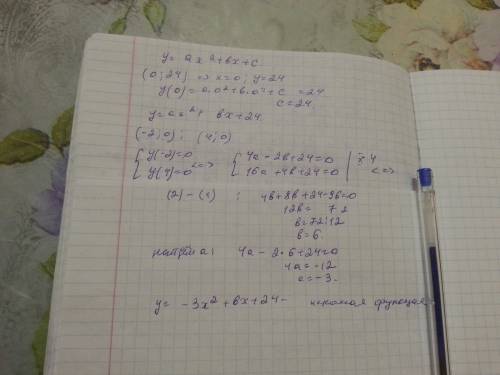 y = ax²+bx+c.
(0; 24) => x=0; y=24
y(0) = a·0²+b·0+c = 24
c = 24.
y = ax²+ bx+24
(-2; 0) ; (4; 0)
{ y(-2)=0 <=> { 4a - 2b + 24 = 0 | · 4
{ y(4)=0 { 16a + 4b + 24 = 0 <=>
(2) - (1) : 4b + 8b + 24 - 96=0
12b = 72
b = 72:12
b = 6.
найдём a: 4a - 2·6 + 24=0
4a = -12
a = -3.
y = -3x² + 6x + 24 - искомая функция